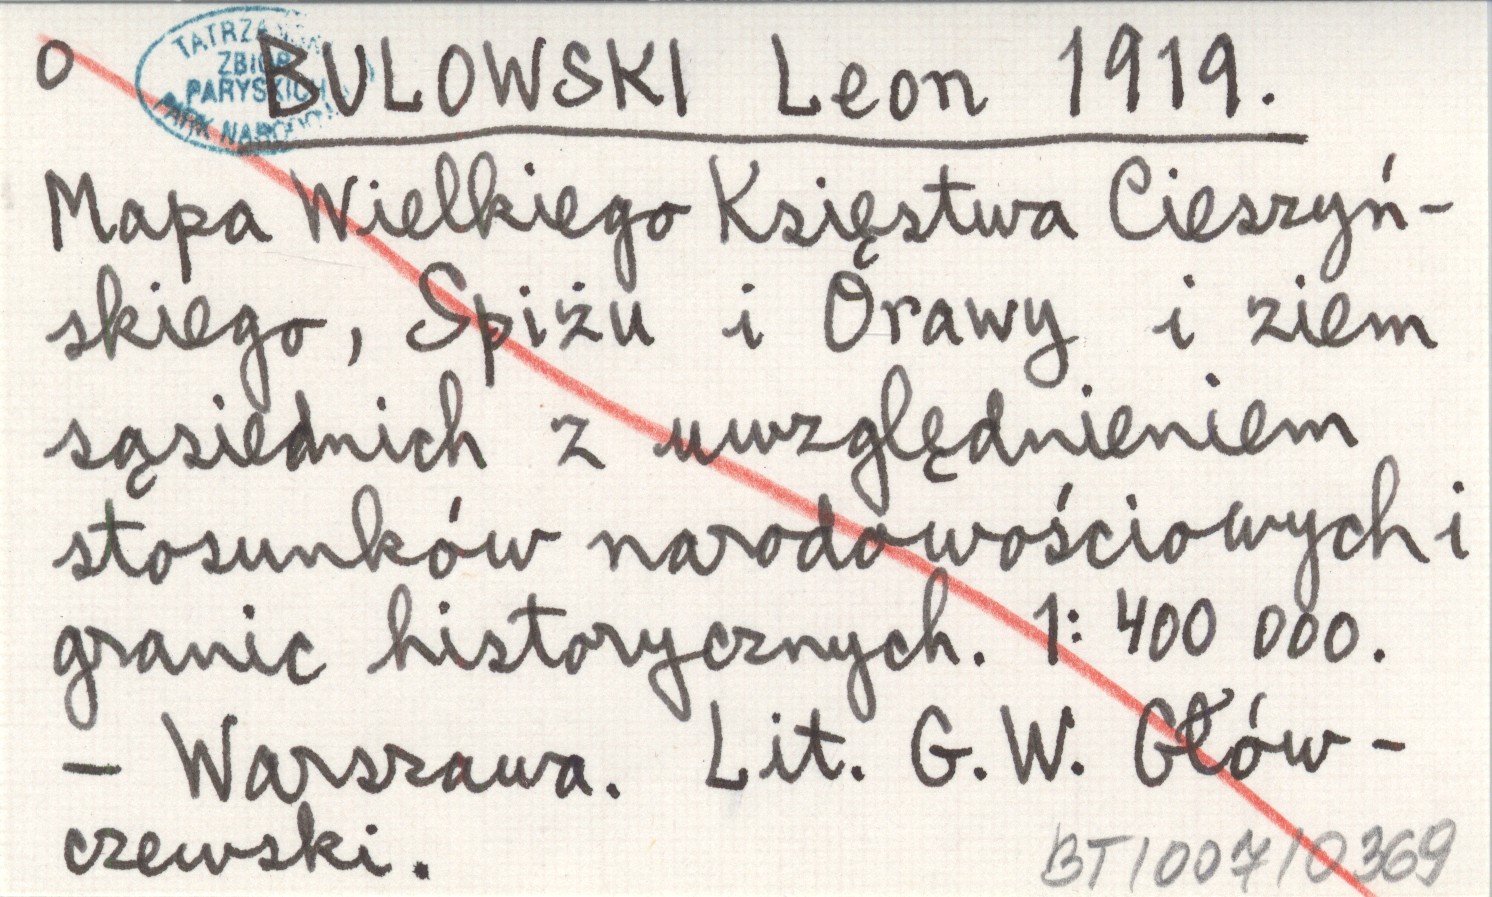 o BULOWSKI Leon 1919.
TATRZAŃSKI
ZBIOR
PARYSKICH
PARK NARODOWY
Mapa Wielkiego Księstwa Cieszyń-
skiego, Spiżu i Orawy i ziem
sąsiednich z uwzględnieniem
stosunków narodowościowych i
granic historycznych. 1: 400 000.
- Warszawa. Lit. G. W. Głów-
czewski.
BT/007/0369